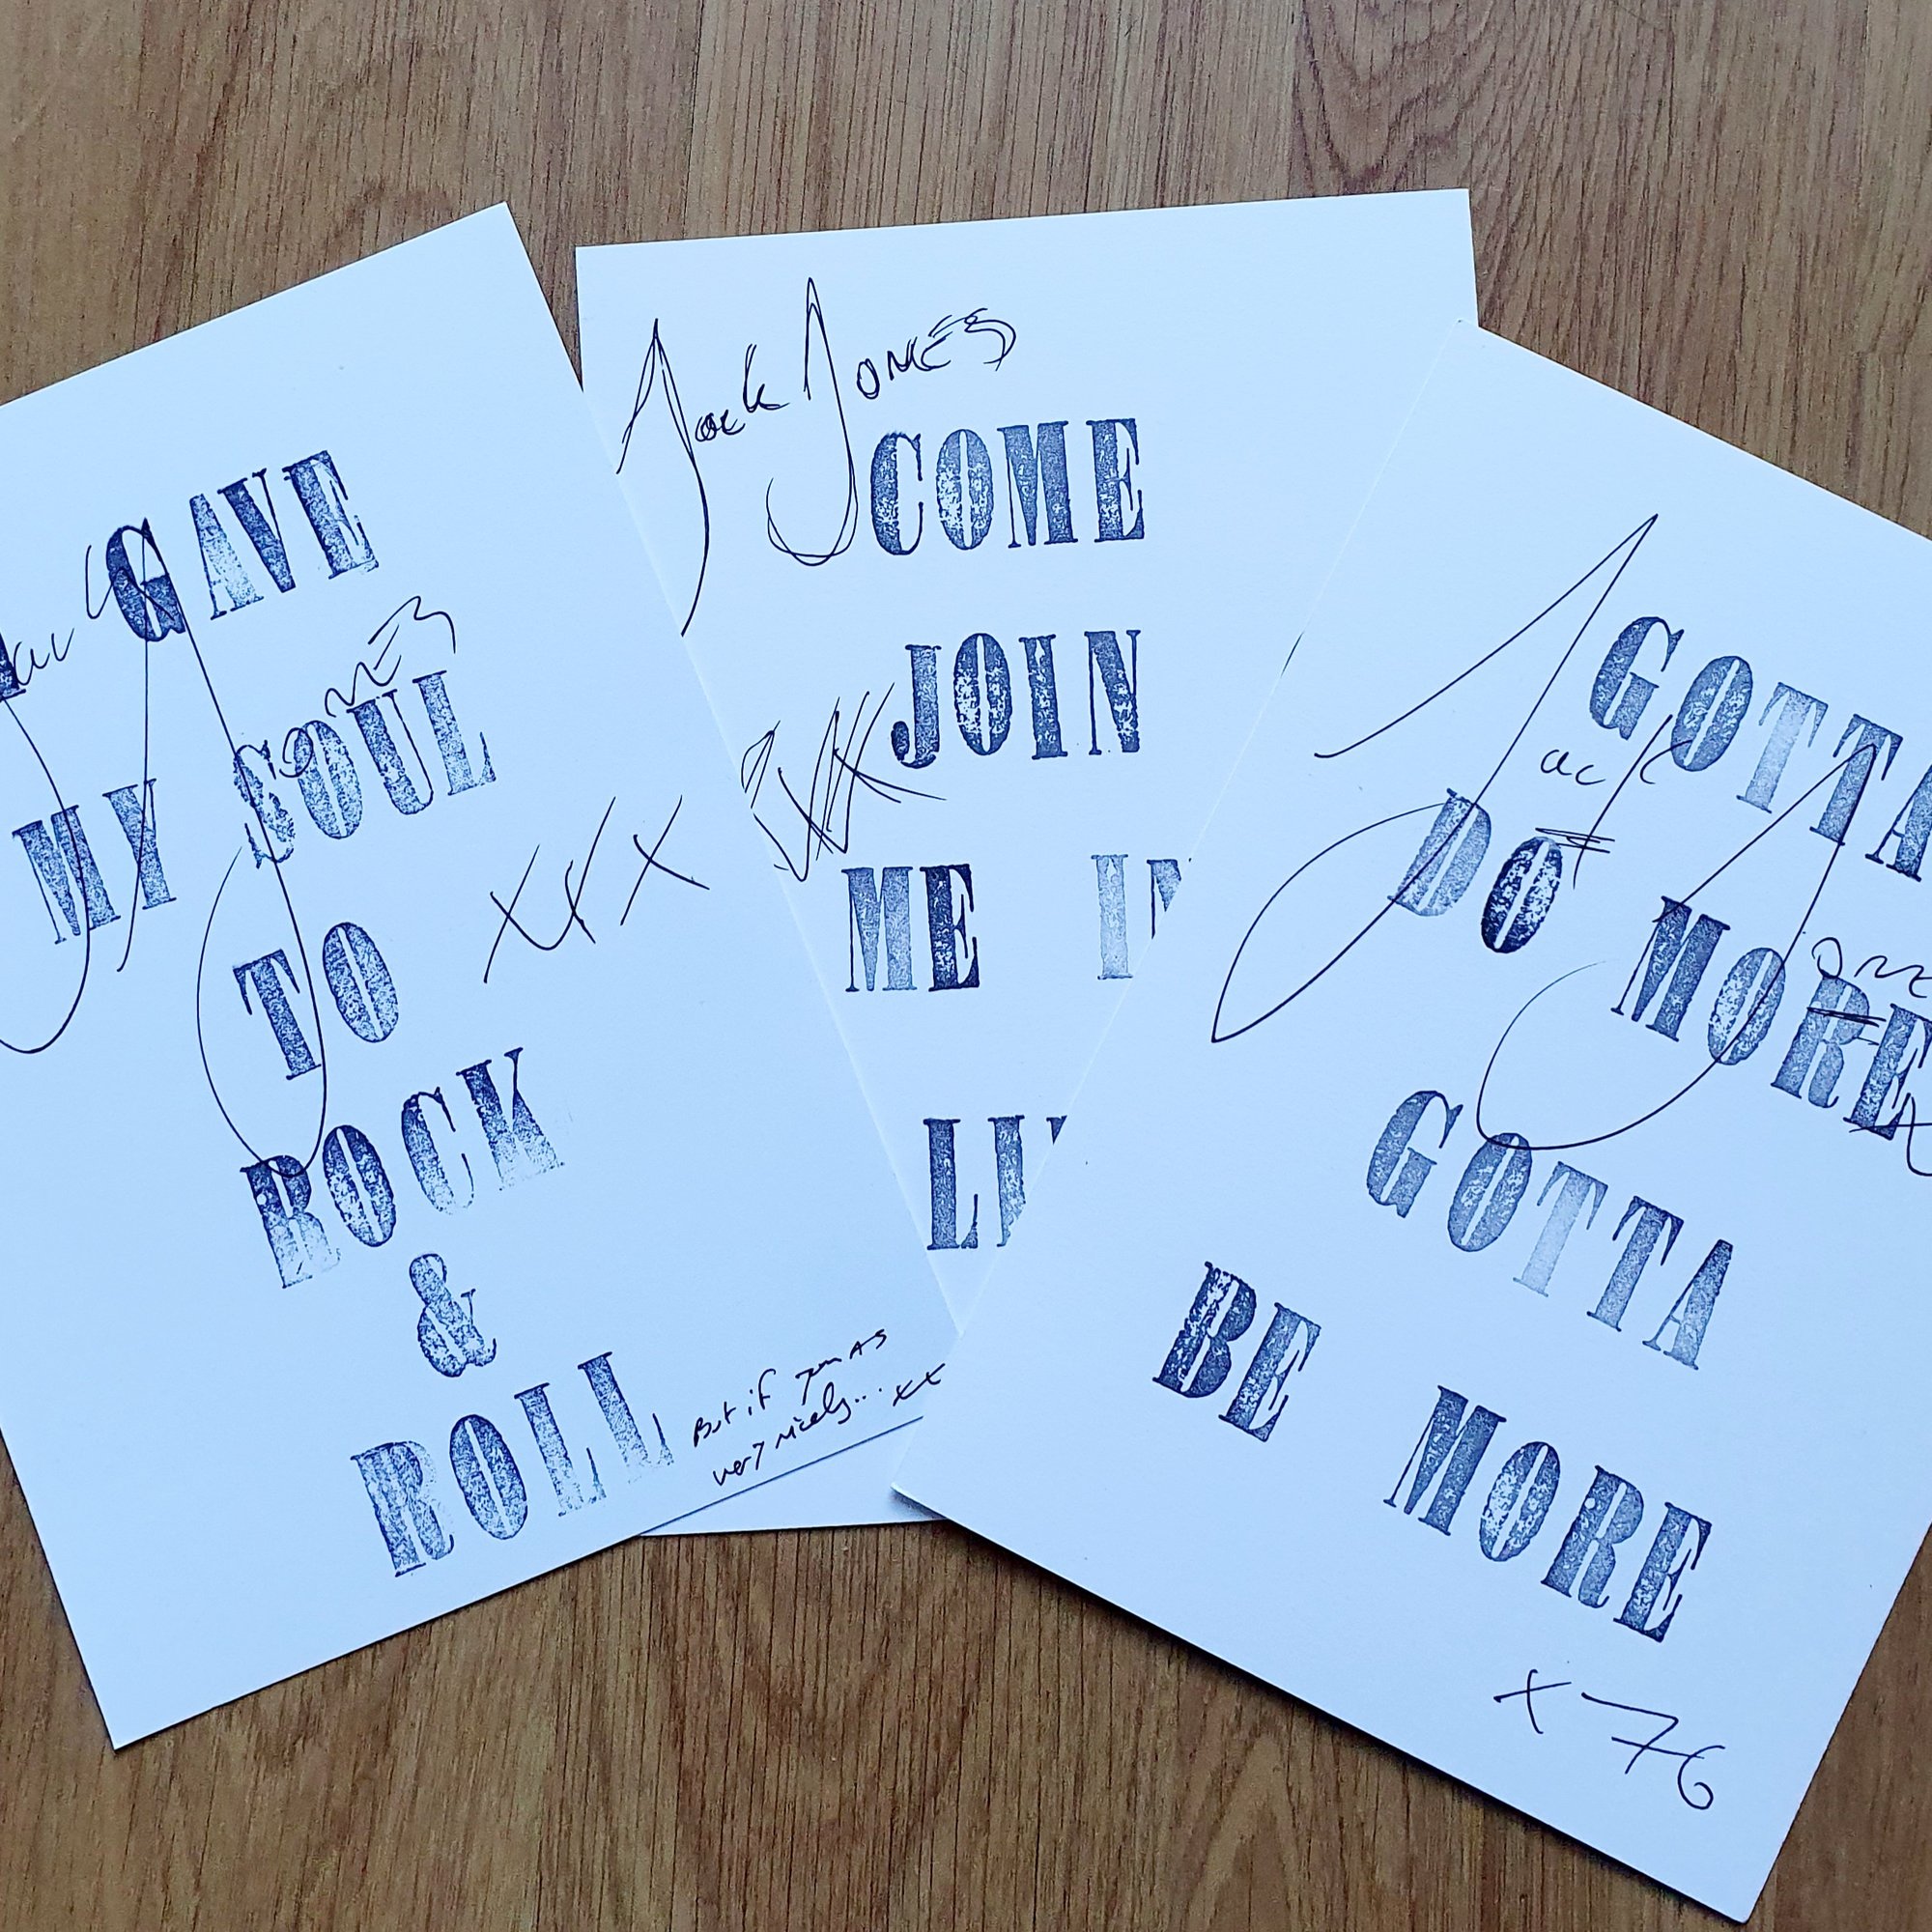 GAVE
MY SOUL
TO
ROCK
&
ROLL
Jack Jones
xxx
But if you as
very nicely... xx
Jack Jones
COME
JOIN
ME IN
LI
GOTTA
DO MORE
GOTTA
BE MORE
Jack Jones
x 76